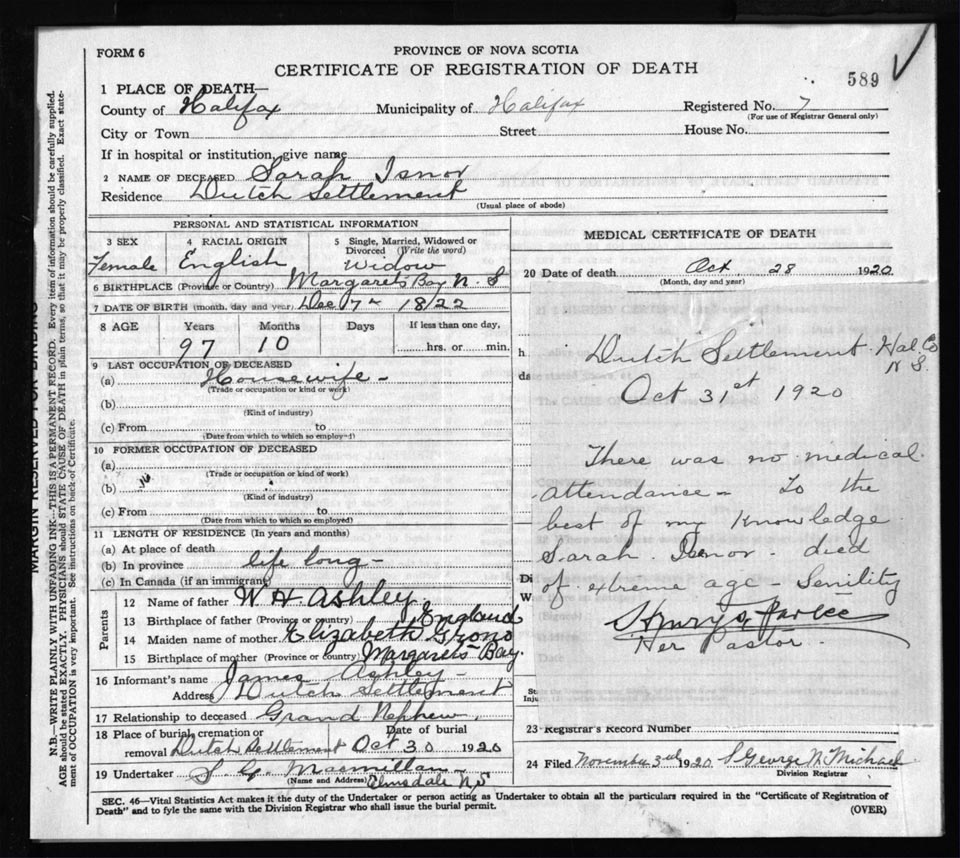 FORM 6
PROVINCE OF NOVA SCOTIA
CERTIFICATE OF REGISTRATION OF DEATH
589
1 PLACE OF DEATH—
County of Halifax Municipality of Halifax Registered No. 7
(For use of Registrar General only)
City or Town Street House No.
If in hospital or institution, give name
2 NAME OF DECEASED Sarah Isnor
Residence Dutch Settlement
(Usual place of abode)
PERSONAL AND STATISTICAL INFORMATION
3 SEX 4 RACIAL ORIGIN 5 Single, Married, Widowed or Divorced (Write the word)
Female English Widow
6 BIRTHPLACE (Province or Country) Margarets Bay N. S
7 DATE OF BIRTH (month, day and year) Dec 7th 1822
8 AGE Years Months Days If less than one day,
97 10 hrs. or min.
9 LAST OCCUPATION OF DECEASED
(a) Housewife -
(Trade or occupation or kind or work)
(b)
(Kind of industry)
(c) From to
(Date from which to which so employed)
10 FORMER OCCUPATION OF DECEASED
(a)
(Trade or occupation or kind of work)
(b)
(Kind of industry)
(c) From to
(Date from which to which so employed)
11 LENGTH OF RESIDENCE (In years and months)
(a) At place of death
(b) In province life long -
(c) In Canada (if an immigrant)
Parents
12 Name of father W H. Ashley.
13 Birthplace of father (Province or country) England
14 Maiden name of mother Elizabeth Grono
15 Birthplace of mother (Province or country) Margarets Bay.
16 Informant's name James Ashley -
Address Dutch Settlement
17 Relationship to deceased Grand Nephew,
18 Place of burial, cremation or removal Dutch Settlement Date of burial Oct 30 1920
19 Undertaker S. G. Macmillan -
(Name and Address) Elmsdale N.S
MEDICAL CERTIFICATE OF DEATH
20 Date of death Oct. 28 1920
(Month, day and year)
Dutch Settlement. Hal Co
N S.
Oct 31st 1920
There was no medical
attendance - To the
best of my knowledge
Sarah Isnor - died
of extreme age - Senility
Her Pastor.
23 Registrar's Record Number
24 Filed November 3rd 1920 George N. Michael
Division Registrar
SEC. 46—Vital Statistics Act makes it the duty of the Undertaker or person acting as Undertaker to obtain all the particulars required in the "Certificate of Registration of
Death" and to fyle the same with the Division Registrar who shall issue the burial permit.
(OVER)
MARGIN RESERVED FOR BINDING
N.B.—WRITE PLAINLY WITH UNFADING INK—THIS IS A PERMANENT RECORD. Every item of information should be carefully supplied.
AGE should be stated EXACTLY. PHYSICIANS should STATE CAUSE OF DEATH in plain terms, so that it may be properly classified. Exact state-
ment of OCCUPATION is very important. See instructions on back of Certificate.